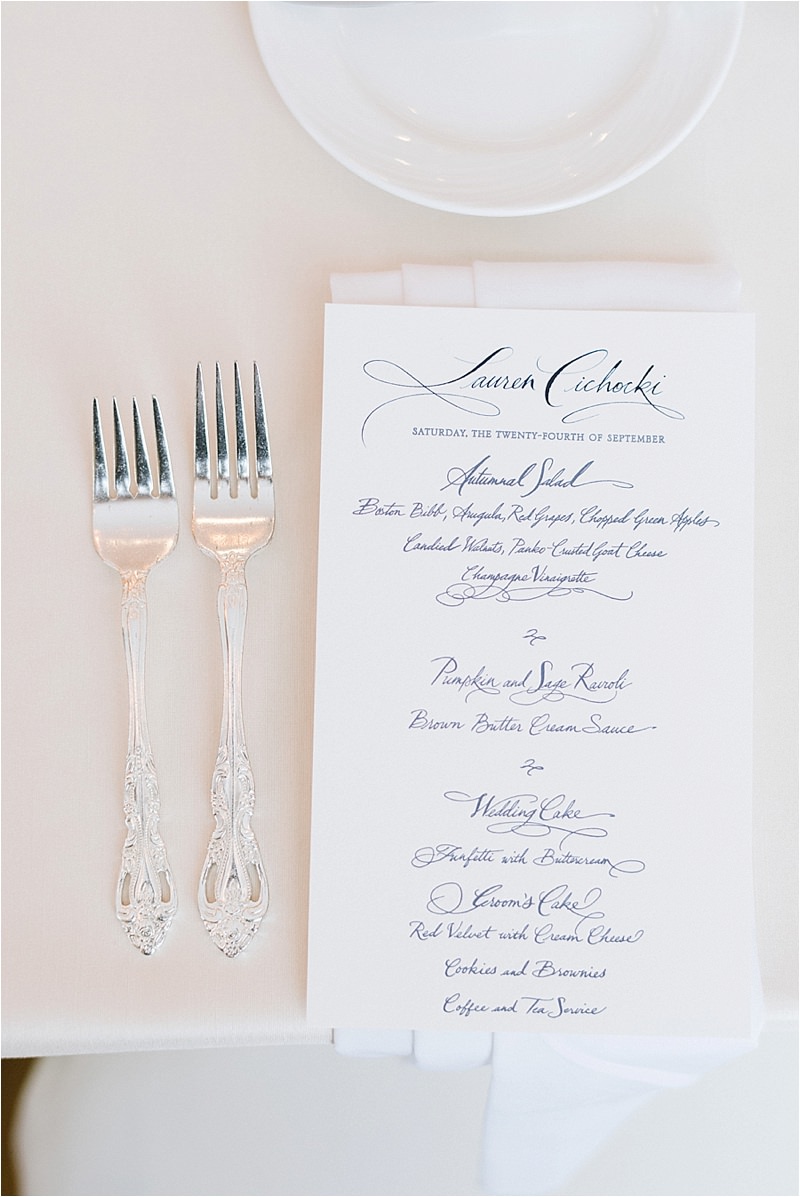 Lauren Cichocki
SATURDAY, THE TWENTY-FOURTH OF SEPTEMBER
Autumnal Salad
Boston Bibb, Arugula, Red Grapes, Chopped Green Apples
Candied Walnuts, Panko-Crusted Goat Cheese
Champagne Vinaigrette
Pumpkin and Sage Ravioli
Brown Butter Cream Sauce
Wedding Cake
Funfetti with Buttercream
Groom's Cake
Red Velvet with Cream Cheese
Cookies and Brownies
Coffee and Tea Service